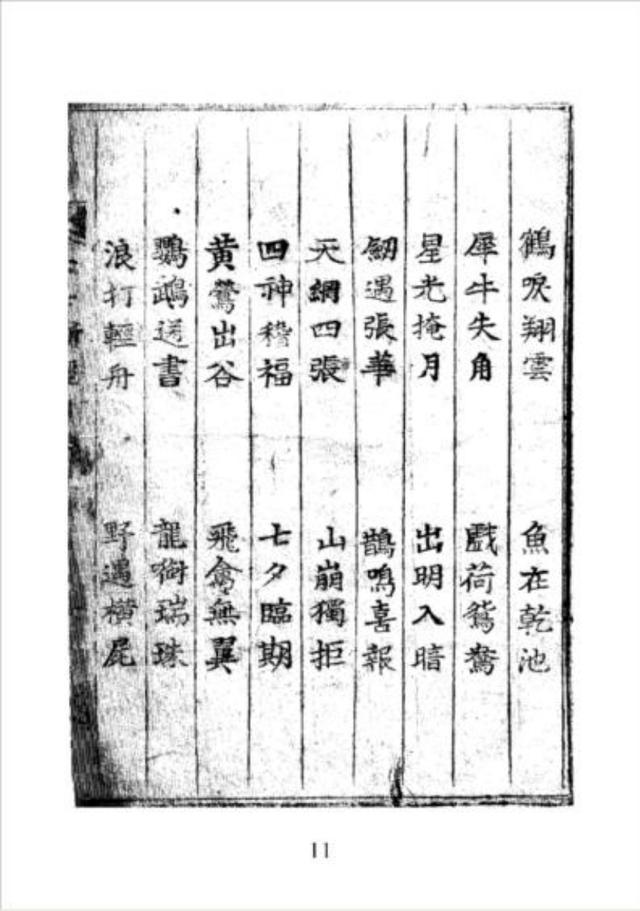 鶴唳翔雲 魚在乾池
犀牛失角 戲荷鴛鴦
星光掩月 出明入暗
劒遇張華 鵲鳴喜報
天網四張 山崩獨拒
四神稽福 七夕臨期
黄鶯出谷 飛禽無翼
鸚鵡送書 龍啣瑞珠
浪打輕舟 野遇横屍
11